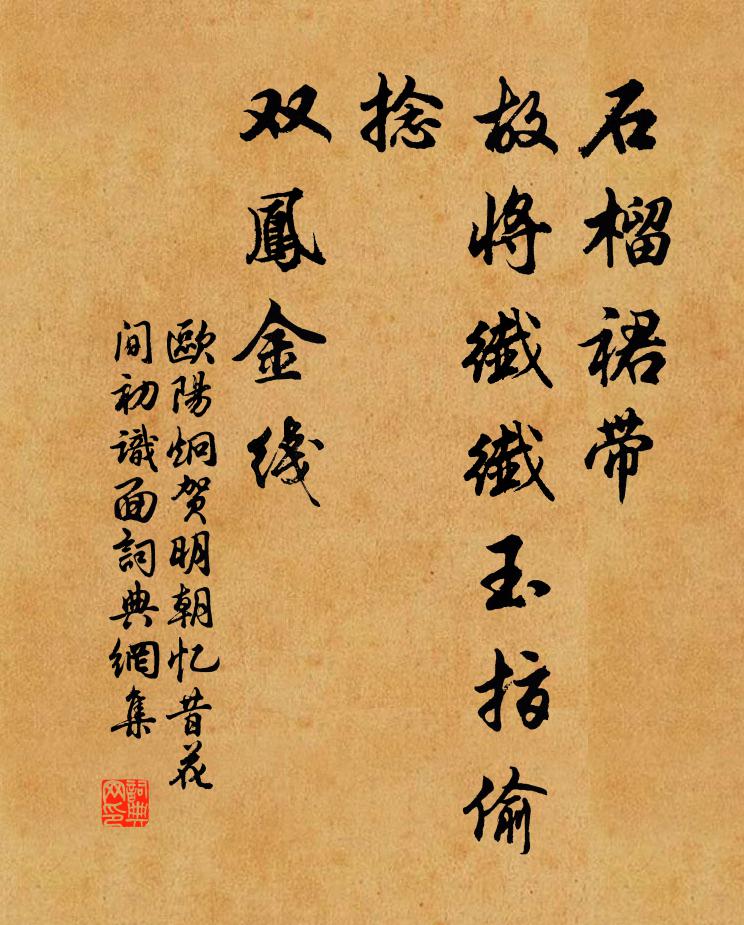 石榴裙带
故将纖纖玉指偷
捻
双鳳金线
歐陽炯贺明朝忆昔花
间初識面詞典網集
詞典网印